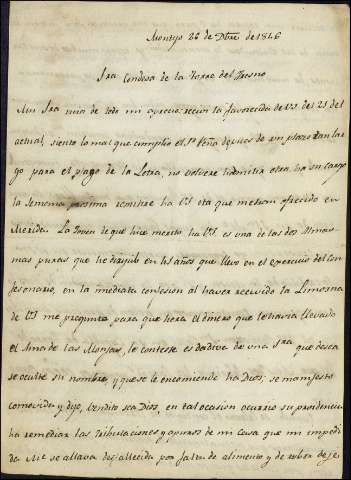 Montijo 26 de Dbre de 1846
Sra Condesa de la Torre del Fresno
Mui Sra mia de todo mi aprecio: recivi la favorecida de V.S. del 21 del
actual, siento lo mal que cumplio el Sr Peña despues de un plazo tan lar
go para el pago de la Letra, no volvere hadmitir otra ha su cargo
la semana procsima remitire ha Vs esta que me han ofrecido en
Merida. La Joven de que hice merito ha Vs es una de las dos Almas
mas puras que he dirijido en 41 años que llevo en el exercicio del con
fesonario, en la imediata confesion al haver recivido la Limosna
de Vs me pregunto para que hera el dinero que le havia llevado
el Ama de las Monjas, le conteste es dadiva de una Sra que desea
se oculte su nombre, y que se le encomiende ha Dios, se manifesto
comovida y dijo, bendito sea Dios, en tal ocasion ocurrio su providencia
ha remediar las tribulaciones y apuros de mi casa que mi impedi
da Me se allava desfallecida por falta de alimento y de rubor de se